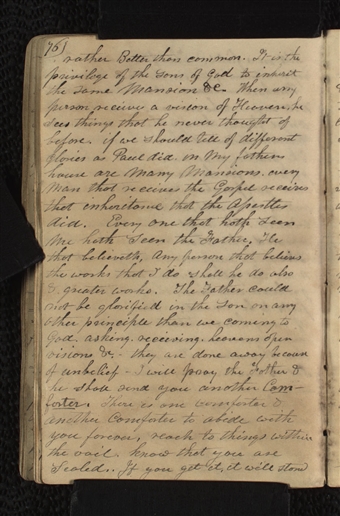 76)
rather Better than common. It is the
privilege of the Sons of God to inherit
the Same Mansion &c. When any
person receives a vision of Heaven, he
Sees things that he never thought of
before. if we should tell of different
glories as Paul did. in My fathers
house are Many Mansions. every
Man that receives the Gospel receives
that inheritance that the Apostles
did. Every one that hath Seen
Me hath Seen the Father, He
that believeth, Any person that believes
the works that I do shall he do also
& greater works. The Father could
not be glorified in the Son on any
other principle than we coming to
God. asking. receiving. heavens open
visions &c. they are done away because
of unbelief - I will pray the Father &
he shall send you another Com-
forter. There is one comforter &
another Comforter to abide with
you forever, reach to things within
the vail. know that you are
Sealed. If you get it, it will stand